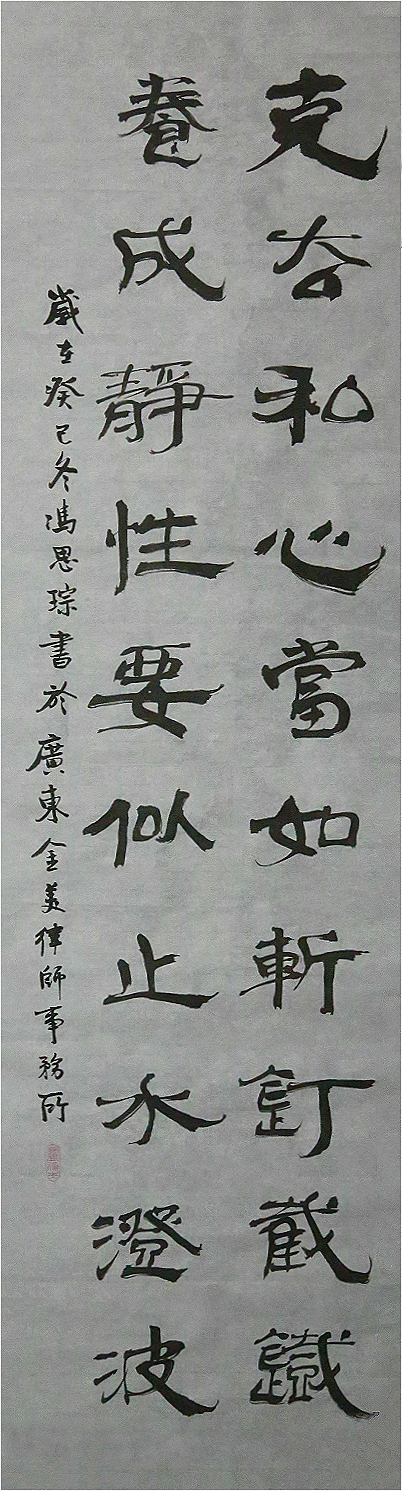 克去私心當如斬釘截鐵
養成靜性要似止水澄波
歲在癸巳冬馮思琮書於廣東金美律師事務所